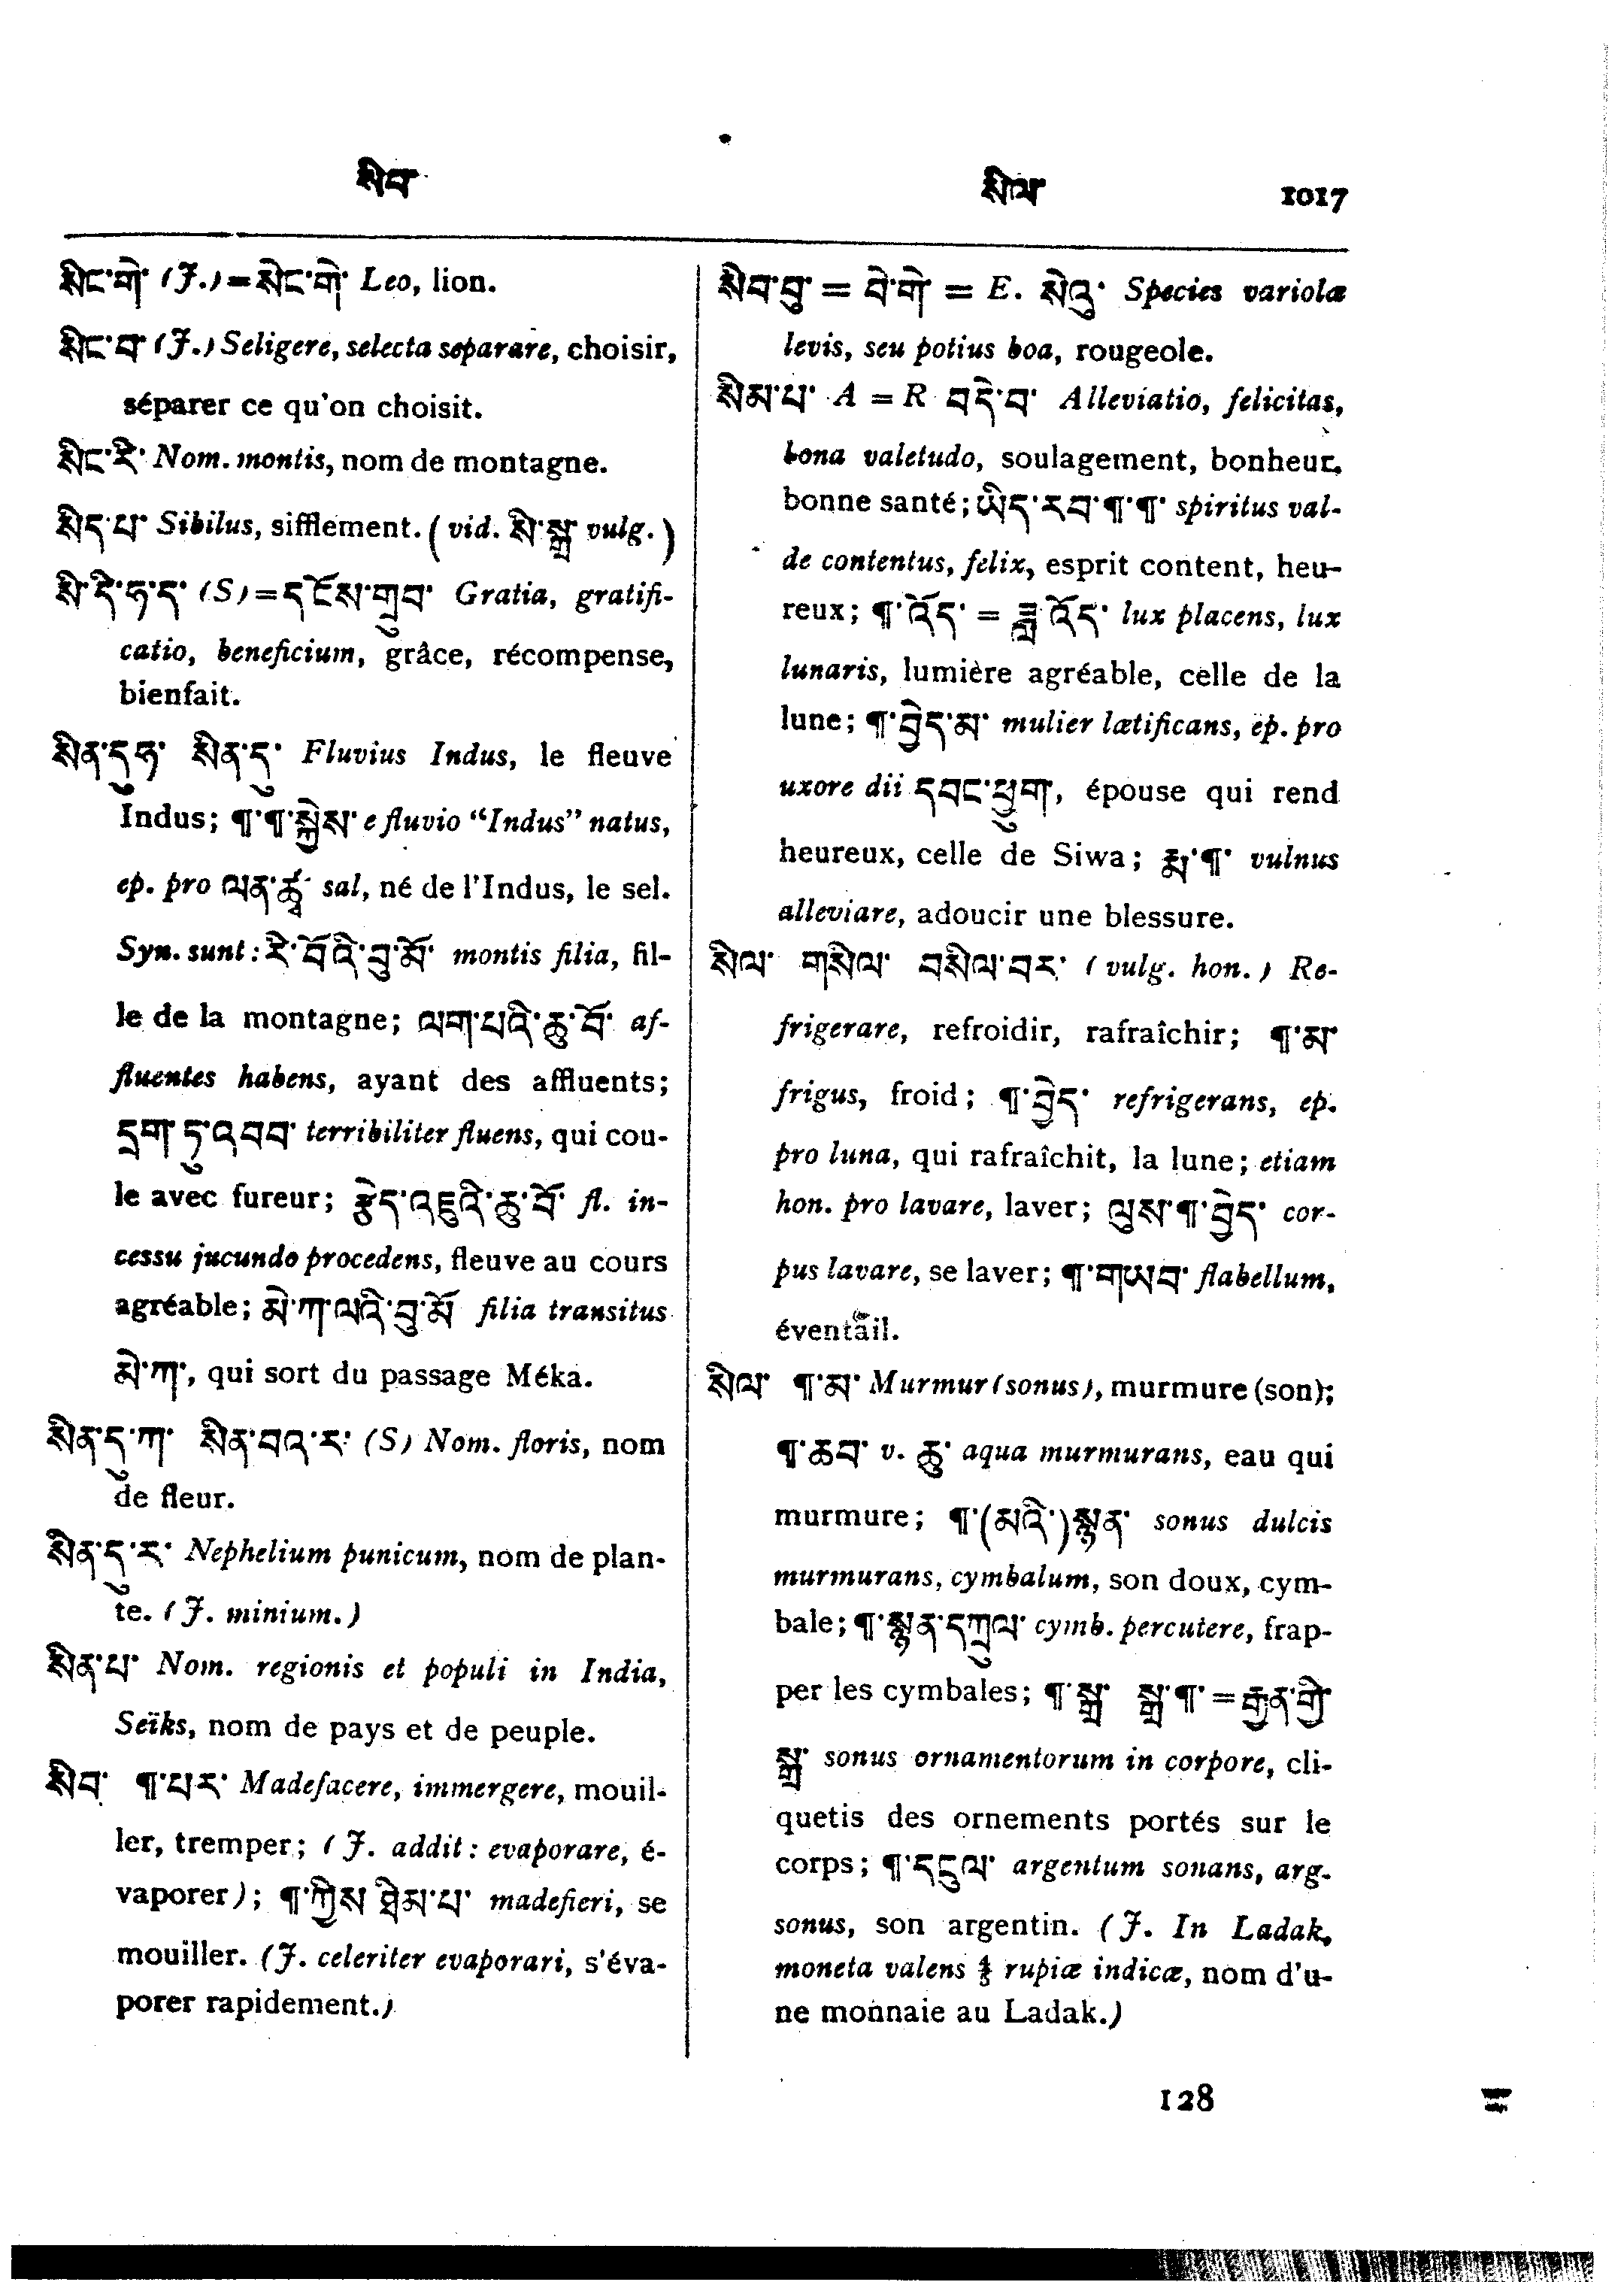 སིབ་
སིལ་ 1017
སིང་གེ་ (J.) = སེང་གེ་ Leo, lion.
སིང་བ་ (J.) Seligere, selecta separare, choisir,
séparer ce qu'on choisit.
སིང་རི་ Nom. montis, nom de montagne.
སིད་པ་ Sibilus, sifflement. (vid. སི་སྒྲ་ vulg.)
སི་དི་ཧ་ད་ (S) = དངོས་གྲུབ་ Gratia, gratifi-
catio, beneficium, grâce, récompense,
bienfait.
སིན་དུ་ཧ་ སིན་དུ་ Fluvius Indus, le fleuve
Indus; ¶་¶་སྐྱེས་ e fluvio "Indus" natus,
ep. pro ལན་ཚྭ་ sal, né de l'Indus, le sel.
Syn. sunt: རི་བོའི་བུ་མོ་ montis filia, fil-
le de la montagne; ལག་པའི་ཆུ་བོ་ af-
fluentes habens, ayant des affluents;
དྲག་ཏུ་འབབ་ terribiliter fluens, qui cou-
le avec fureur; རྩེད་འཇུའི་ཆུ་བོ་ fl. in-
cessu jucundo procedens, fleuve au cours
agréable; མེ་ཀ་ལའི་བུ་མོ་ filia transitus
མེ་ཀ་, qui sort du passage Méka.
སིན་དུ་ཀ་ སིན་བའ་ར་ (S) Nom. floris, nom
de fleur.
སིན་དུ་ར་ Nephelium punicum, nom de plan-
te. (J. minium.)
སིན་པ་ Nom. regionis et populi in India,
Seïks, nom de pays et de peuple.
སིབ་ ¶་པར་ Madefacere, immergere, mouil-
ler, tremper; (J. addit: evaporare, é-
vaporer); ¶་ཀྱིས་ཐིམ་པ་ madefieri, se
mouiller. (J. celeriter evaporari, s'éva-
porer rapidement.)
སིབ་བུ་ = བེ་གེ་ = E. སེའུ་ Species variolæ
levis, seu potius boa, rougeole.
སིམ་པ་ A = R བདེ་བ་ Alleviatio, felicitas,
bona valetudo, soulagement, bonheur,
bonne santé; ཡིད་རབ་¶་¶་ spiritus val-
de contentus, felix, esprit content, heu-
reux; ¶་འོད་ = ཟླ་འོད་ lux placens, lux
lunaris, lumière agréable, celle de la
lune; ¶་བྱེད་མ་ mulier lætificans, ep. pro
uxore dii དབང་ཕྱུག་, épouse qui rend
heureux, celle de Siwa; རྨ་¶་ vulnus
alleviare, adoucir une blessure.
སིལ་ གསིལ་ བསིལ་བར་ (vulg. hon.) Re-
frigerare, refroidir, rafraîchir; ¶་མ་
frigus, froid; ¶་བྱེད་ refrigerans, ep.
pro luna, qui rafraîchit, la lune; etiam
hon. pro lavare, laver; ལུས་¶་བྱེད་ cor-
pus lavare, se laver; ¶་གཡབ་ flabellum,
éventail.
སིལ་ ¶་མ་ Murmur (sonus), murmure (son);
¶་ཆབ་ v. ཆུ་ aqua murmurans, eau qui
murmure; ¶་(མའི་)སྙན་ sonus dulcis
murmurans, cymbalum, son doux, cym-
bale; ¶་སྙན་དཀྲུལ་ cymb. percutere, frap-
per les cymbales; ¶་སྒྲ་ སྒྲ་¶་ = རྒྱན་གྱི་
སྒྲ་ sonus ornamentorum in corpore, cli-
quetis des ornements portés sur le
corps; ¶་དངུལ་ argentum sonans, arg.
sonus, son argentin. (J. In Ladak,
moneta valens ⅘ rupiæ indicæ, nom d'u-
ne monnaie au Ladak.)
128